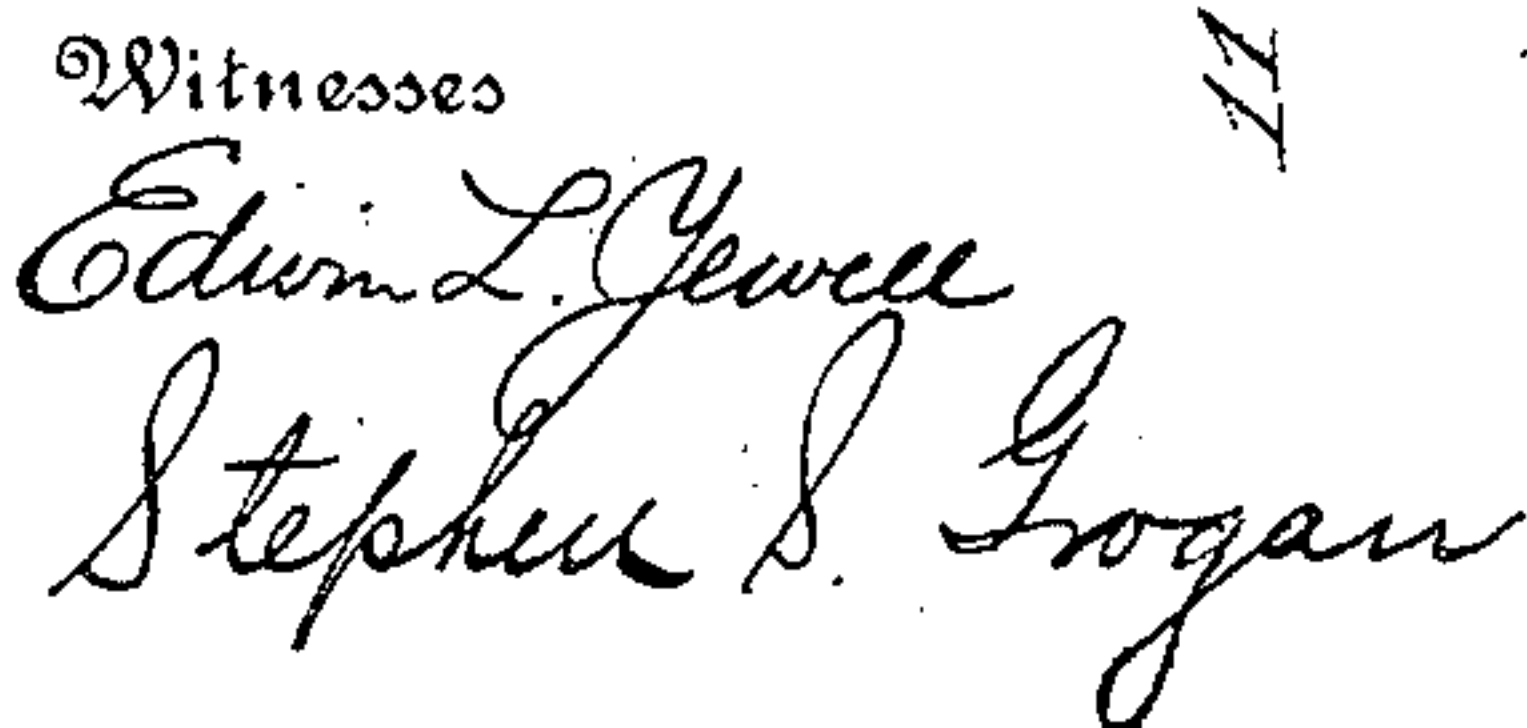 Witnesses
Edwin L. Yewell
Stephen S. Grogan
11